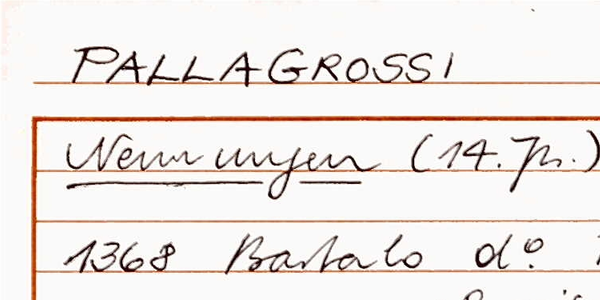 PALLAGROSSI
Nennungen (14. Jh.)
1368 Bartalo d.º